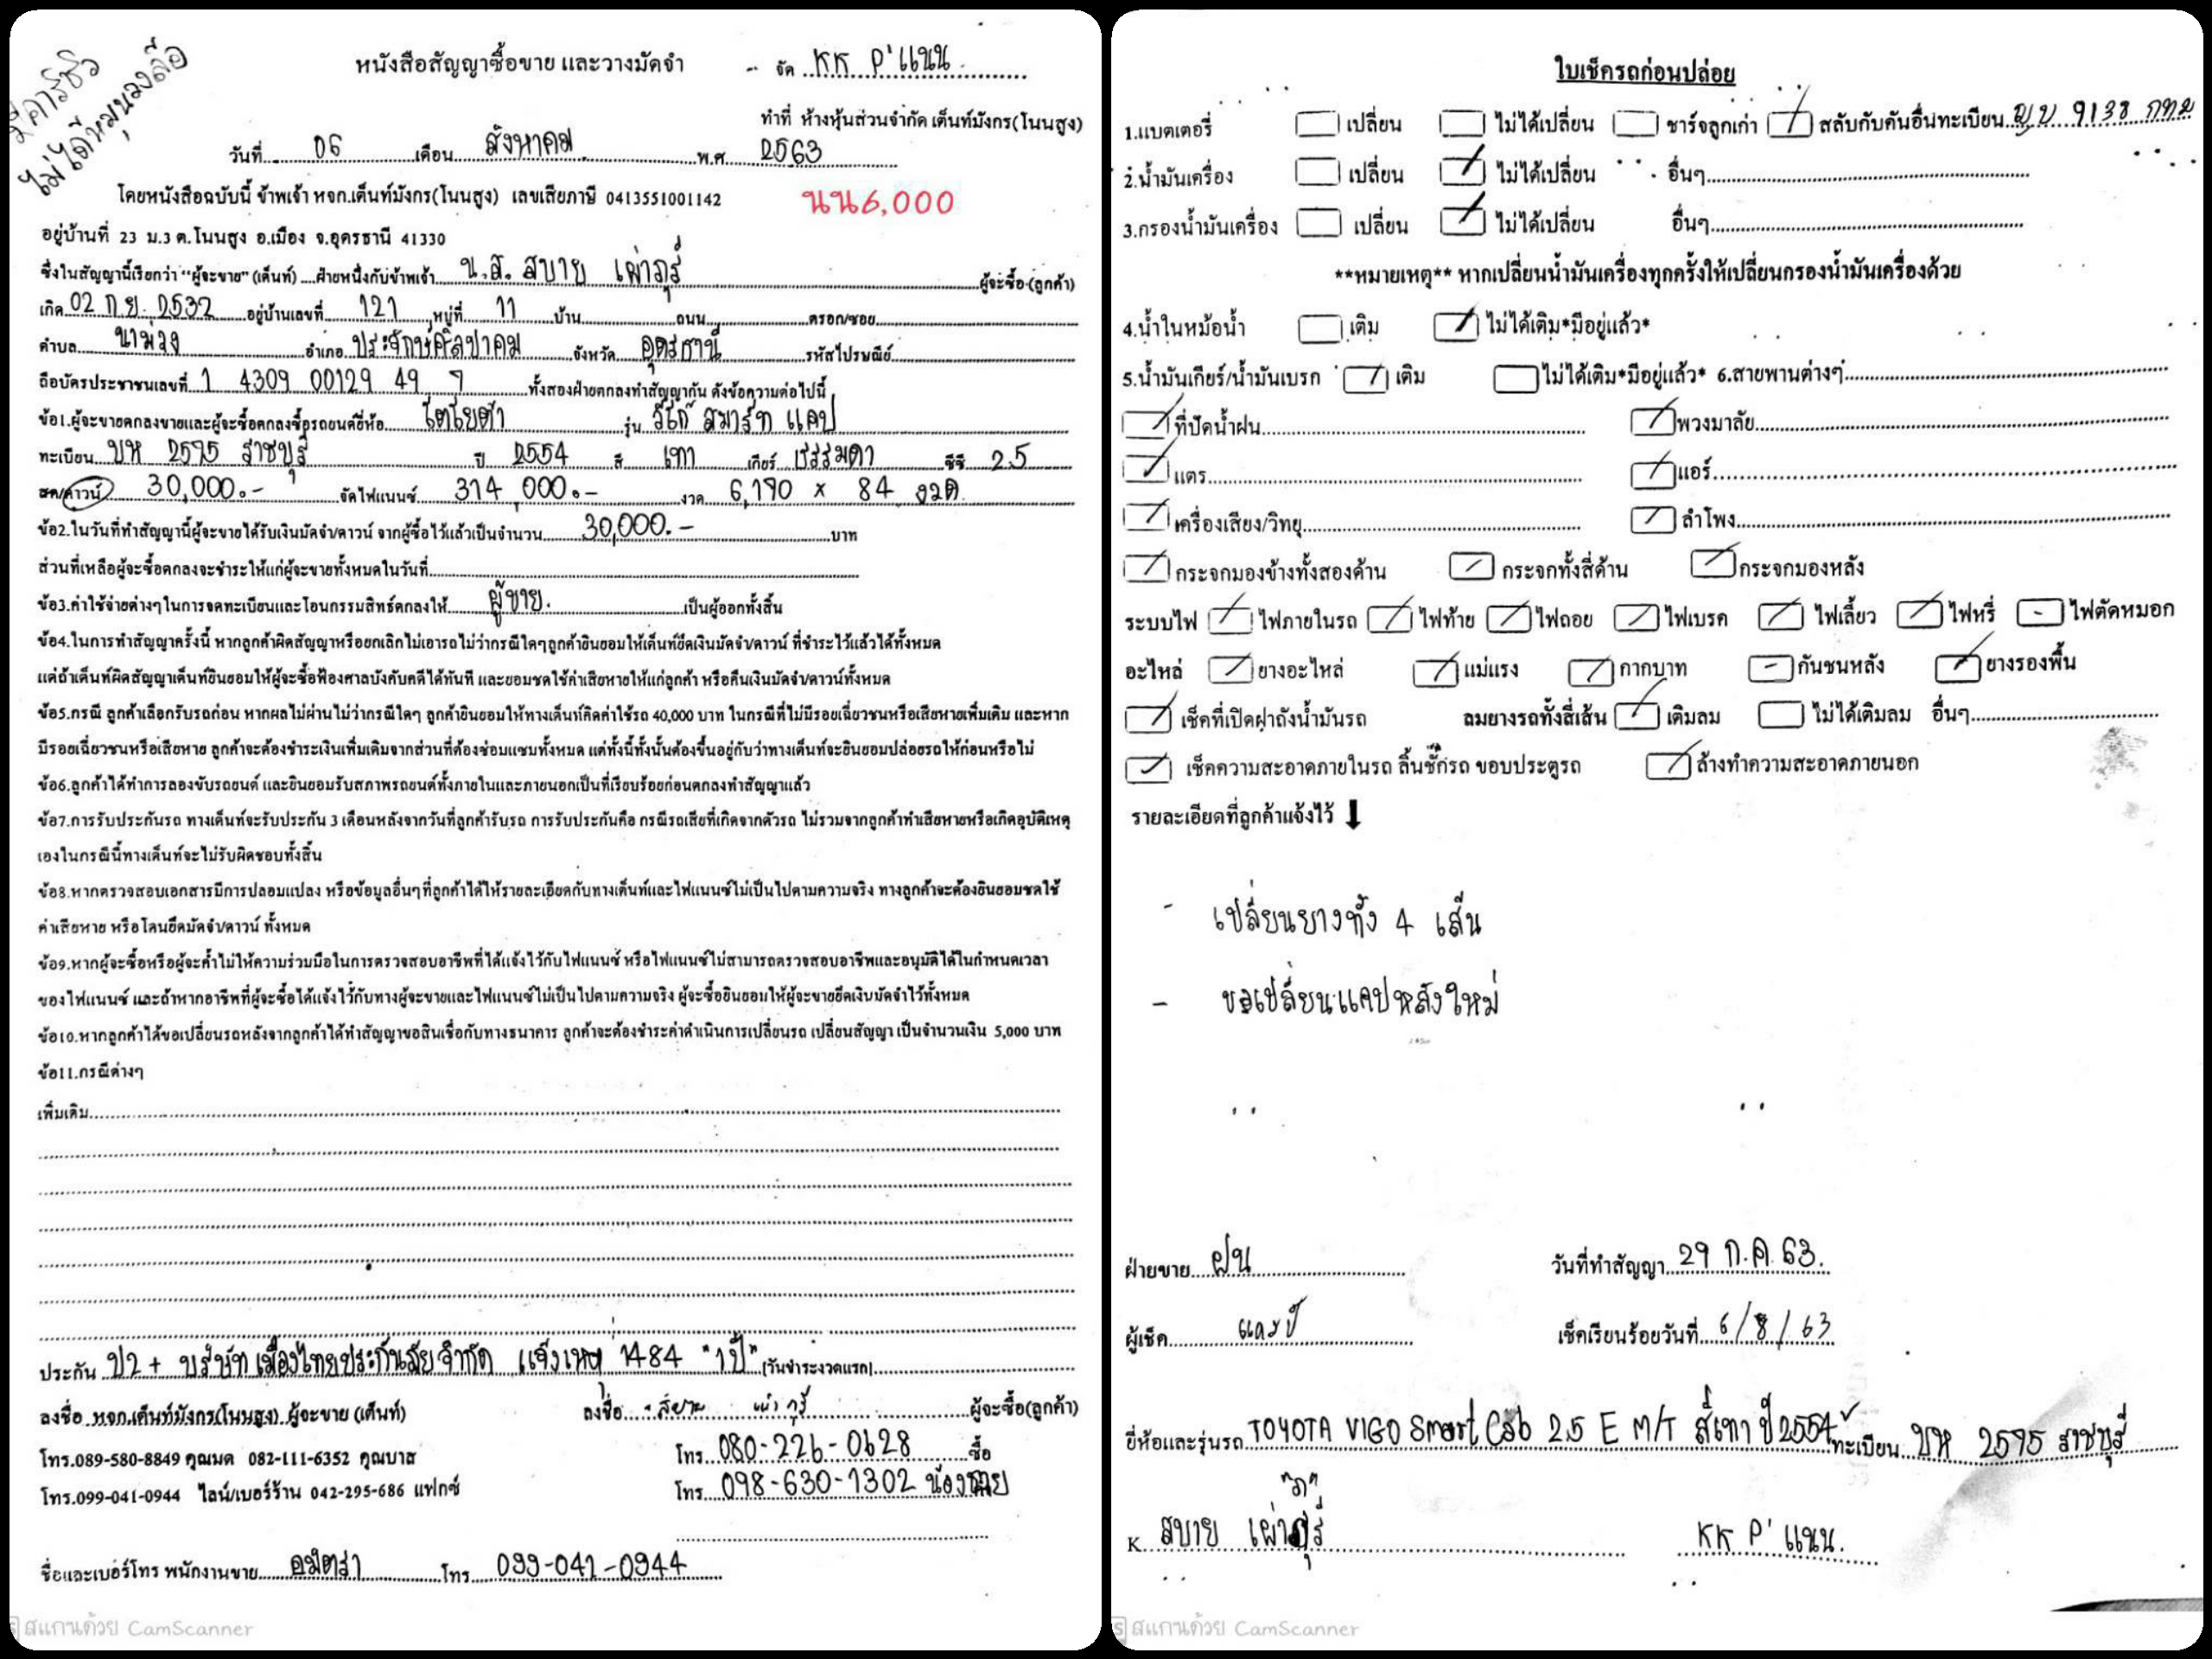 มีคาร์ชิว
ไม่ได้หมุนวงล้อ
หนังสือสัญญาซื้อขาย และวางมัดจำ
- จัด KK P'แนน
ทำที่ ห้างหุ้นส่วนจำกัด เต็นท์มังกร(โนนสูง)
วันที่ 06 เดือน สิงหาคม พ.ศ 2563
โดยหนังสือฉบับนี้ ข้าพเจ้า หจก.เต็นท์มังกร(โนนสูง) เลขเสียภาษี 0413551001142
นน6,000
อยู่บ้านที่ 23 ม.3 ต.โนนสูง อ.เมือง จ.อุดรธานี 41330
ซึ่งในสัญญานี้เรียกว่า "ผู้จะขาย" (เต็นท์) ....ฝ่ายหนึ่งกับข้าพเจ้า น.ส. สบาย เผ่าภูรี่ ผู้จะซื้อ(ลูกค้า)
เกิด 02 ก.ย. 2532 อยู่บ้านเลขที่ 121 หมู่ที่ 11 บ้าน ถนน ตรอก/ซอย
ตำบล นาม่วง อำเภอ ประจักษ์ศิลปาคม จังหวัด อุดรธานี รหัสไปรษณีย์
ถือบัตรประชาชนเลขที่ 1 4309 00129 49 7 ทั้งสองฝ่ายตกลงทำสัญญากัน ดังข้อความต่อไปนี้
ข้อ1.ผู้จะขายตกลงขายและผู้จะซื้อตกลงซื้อรถยนต์ยี่ห้อ โตโยต้า รุ่น วีโก้ สมาร์ท แคป
ทะเบียน บห 2595 ราชบุรี ปี 2554 สี เทา เกียร์ ธรรมดา ซีซี 2.5
สด/ดาวน์ 30,000.- จัดไฟแนนซ์ 314,000.- งวด 6,190 x 84 งวด
ข้อ2.ในวันที่ทำสัญญานี้ผู้จะขายได้รับเงินมัดจำ/ดาวน์ จากผู้ซื้อไว้แล้วเป็นจำนวน 30,000.- บาท
ส่วนที่เหลือผู้จะซื้อตกลงจะชำระให้แก่ผู้จะขายทั้งหมดในวันที่
ข้อ3.ค่าใช้จ่ายต่างๆในการจดทะเบียนและโอนกรรมสิทธ์ตกลงให้ ผู้ขาย. เป็นผู้ออกทั้งสิ้น
ข้อ4.ในการทำสัญญาครั้งนี้ หากลูกค้าผิดสัญญาหรือยกเลิกไม่เอารถไม่ว่ากรณีใดๆลูกค้ายินยอมให้เต็นท์ยึดเงินมัดจำ/ดาวน์ ที่ชำระไว้แล้วได้ทั้งหมด
แต่ถ้าเต็นท์ผิดสัญญาเต็นท์ยินยอมให้ผู้จะซื้อฟ้องศาลบังคับคดีได้ทันที และยอมชดใช้ค่าเสียหายให้แก่ลูกค้า หรือคืนเงินมัดจำ/ดาวน์ทั้งหมด
ข้อ5.กรณี ลูกค้าเลือกรับรถก่อน หากผลไม่ผ่านไม่ว่ากรณีใดๆ ลูกค้ายินยอมให้ทางเต็นท์คิดค่าใช้รถ 40,000 บาท ในกรณีที่ไม่มีรอยเฉี่ยวชนหรือเสียหายเพิ่มเติม และหาก
มีรอยเฉี่ยวชนหรือเสียหาย ลูกค้าจะต้องชำระเงินเพิ่มเติมจากส่วนที่ต้องซ่อมแซมทั้งหมด แต่ทั้งนี้ทั้งนั้นต้องขึ้นอยู่กับว่าทางเต็นท์จะยินยอมปล่อยรถให้ก่อนหรือไม่
ข้อ6.ลูกค้าได้ทำการลองขับรถยนต์ และยินยอมรับสภาพรถยนต์ทั้งภายในและภายนอกเป็นที่เรียบร้อยก่อนตกลงทำสัญญาแล้ว
ข้อ7.การรับประกันรถ ทางเต็นท์จะรับประกัน 3 เดือนหลังจากวันที่ลูกค้ารับรถ การรับประกันคือ กรณีรถเสียที่เกิดจากตัวรถ ไม่รวมจากลูกค้าทำเสียหายหรือเกิดอุบัติเหตุ
เองในกรณีนี้ทางเต็นท์จะไม่รับผิดชอบทั้งสิ้น
ข้อ8.หากตรวจสอบเอกสารมีการปลอมแปลง หรือข้อมูลอื่นๆที่ลูกค้าได้ให้รายละเอียดกับทางเต็นท์และไฟแนนซ์ไม่เป็นไปตามความจริง ทางลูกค้าจะต้องยินยอมชดใช้
ค่าเสียหาย หรือโดนยึดมัดจำ/ดาวน์ ทั้งหมด
ข้อ9.หากผู้จะซื้อหรือผู้จะค้ำไม่ให้ความร่วมมือในการตรวจสอบอาชีพที่ได้แจ้งไว้กับไฟแนนซ์ หรือไฟแนนซ์ไม่สามารถตรวจสอบอาชีพและอนุมัติได้ในกำหนดเวลา
ของไฟแนนซ์ และถ้าหากอาชีพที่ผู้จะซื้อได้แจ้งไว้กับทางผู้จะขายและไฟแนนซ์ไม่เป็นไปตามความจริง ผู้จะซื้อยินยอมให้ผู้จะขายยึดเงินมัดจำไว้ทั้งหมด
ข้อ10.หากลูกค้าได้ขอเปลี่ยนรถหลังจากลูกค้าได้ทำสัญญาขอสินเชื่อกับทางธนาคาร ลูกค้าจะต้องชำระค่าดำเนินการเปลี่ยนรถ เปลี่ยนสัญญา เป็นจำนวนเงิน 5,000 บาท
ข้อ11.กรณีต่างๆ
เพิ่มเติม
ประกัน ป2+ บริษัท เมืองไทยประกันภัย จำกัด แจ้งเหตุ 1484 "1ปี" (วันชำระงวดแรก)
ลงชื่อ หจก.เต็นท์มังกร(โนนสูง) ผู้จะขาย (เต็นท์) ลงชื่อ สบาย เผ่าภูรี่ ผู้จะซื้อ(ลูกค้า)
โทร.089-580-8849 คุณมด 082-111-6352 คุณบาส โทร 080-226-0628 ซื้อ
โทร.099-041-0944 ไลน์/เบอร์ร้าน 042-295-686 แฟกซ์ โทร 098-630-1302 น้องชาย
ชื่อและเบอร์โทร พนักงานขาย อมิตรา โทร 099-041-0944
สแกนด้วย CamScanner
ใบเช็ครถก่อนปล่อย
1.แบตเตอรี่ เปลี่ยน ไม่ได้เปลี่ยน ชาร์จลูกเก่า / สลับกับคันอื่นทะเบียน 9138 กทม
2.น้ำมันเครื่อง เปลี่ยน / ไม่ได้เปลี่ยน อื่นๆ
3.กรองน้ำมันเครื่อง เปลี่ยน / ไม่ได้เปลี่ยน อื่นๆ
**หมายเหตุ** หากเปลี่ยนน้ำมันเครื่องทุกครั้งให้เปลี่ยนกรองน้ำมันเครื่องด้วย
4.น้ำในหม้อน้ำ เติม / ไม่ได้เติม*มีอยู่แล้ว*
5.น้ำมันเกียร์/น้ำมันเบรก / เติม ไม่ได้เติม*มีอยู่แล้ว* 6.สายพานต่างๆ
/ ที่ปัดน้ำฝน / พวงมาลัย
/ แตร / แอร์
/ เครื่องเสียง/วิทยุ / ลำโพง
/ กระจกมองข้างทั้งสองด้าน / กระจกทั้งสี่ด้าน / กระจกมองหลัง
ระบบไฟ / ไฟภายในรถ / ไฟท้าย / ไฟถอย / ไฟเบรค / ไฟเลี้ยว / ไฟหรี่ - ไฟตัดหมอก
อะไหล่ / ยางอะไหล่ / แม่แรง / กากบาท - กันชนหลัง / ยางรองพื้น
/ เช็คที่เปิดฝาถังน้ำมันรถ ลมยางรถทั้งสี่เส้น / เติมลม ไม่ได้เติมลม อื่นๆ
/ เช็คความสะอาดภายในรถ ลิ้นชั๊กรถ ขอบประตูรถ / ล้างทำความสะอาดภายนอก
รายละเอียดที่ลูกค้าแจ้งไว้ ⬇
- เปลี่ยนยางทั้ง 4 เส้น
- ขอเปลี่ยนแคปหลังใหม่
ฝ่ายขาย ฝน วันที่ทำสัญญา 29 ก.ค. 63.
ผู้เช็ค เช็คเรียบร้อยวันที่ 6/8/63
ยี่ห้อและรุ่นรถ TOYOTA VIGO Smart Cab 2.5 E M/T สีเทา ปี 2554 ทะเบียน บห 2595 ราชบุรี
"ภา"
K สบาย เผ่าภูรี่ KK P'แนน.
สแกนด้วย CamScanner